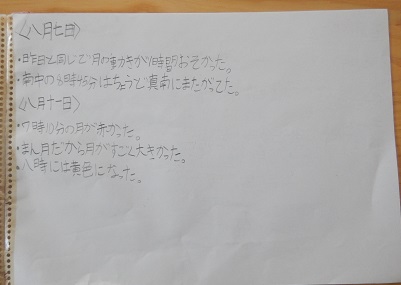 〈八月七日〉
・昨日と同じで月の動きが1時間おそかった。
・南中の8時45分はちょうど真南にまたがってた。
〈八月十一日〉
・7時10分の月が赤かった。
・まん月だから月がすごく大きかった。
・八時には黄色になった。